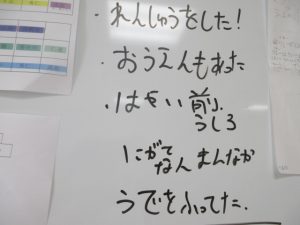 ・れんしゅうをした!
・おうえんもあった
・はやい前
うしろ
にがて
なん まんなか
うでをふってた.